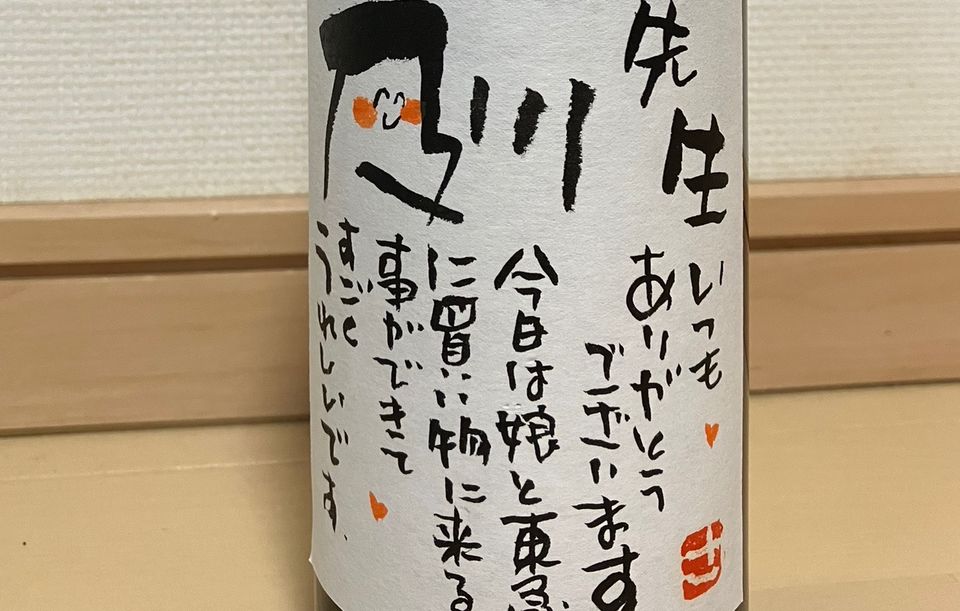 及川
先生
いつも
ありがとう
ございます
今日は娘と東急
に買い物に来る
事ができて
すごく
うれしいです、